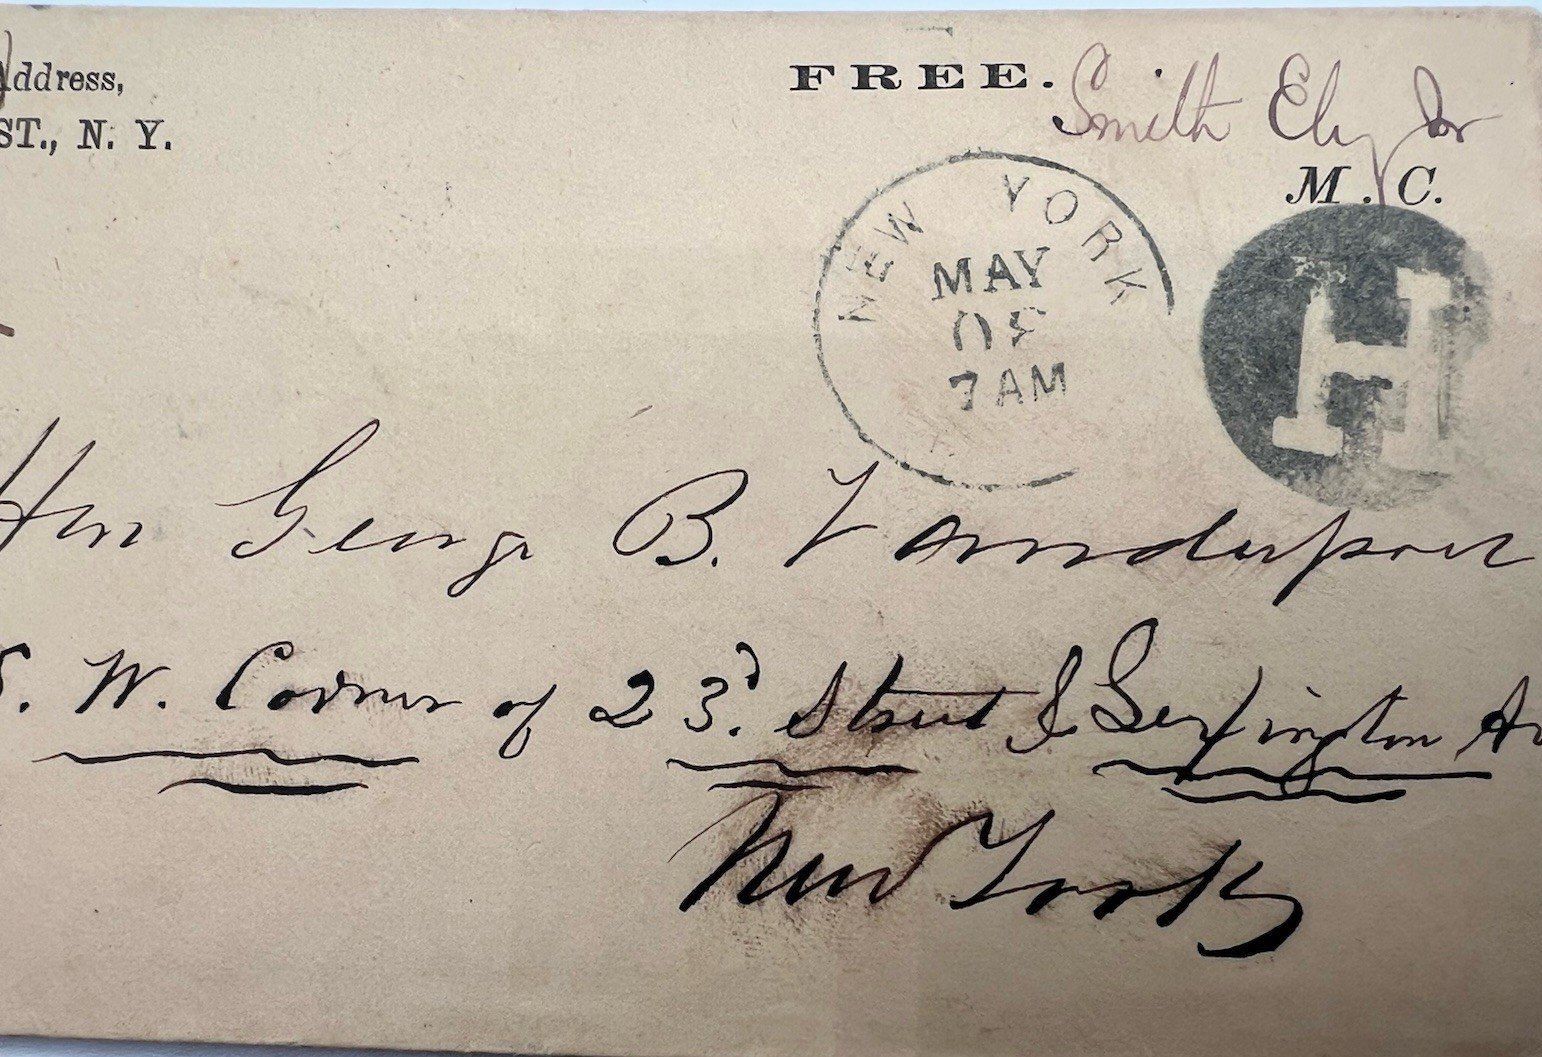 Address,
ST., N. Y.
FREE.
Smith Ely Jr
M. C.
NEW YORK
MAY
7 AM
H
Hon George B. Vanderpoel
S. W. Corner of 23d. Street & Lexington Av
New York